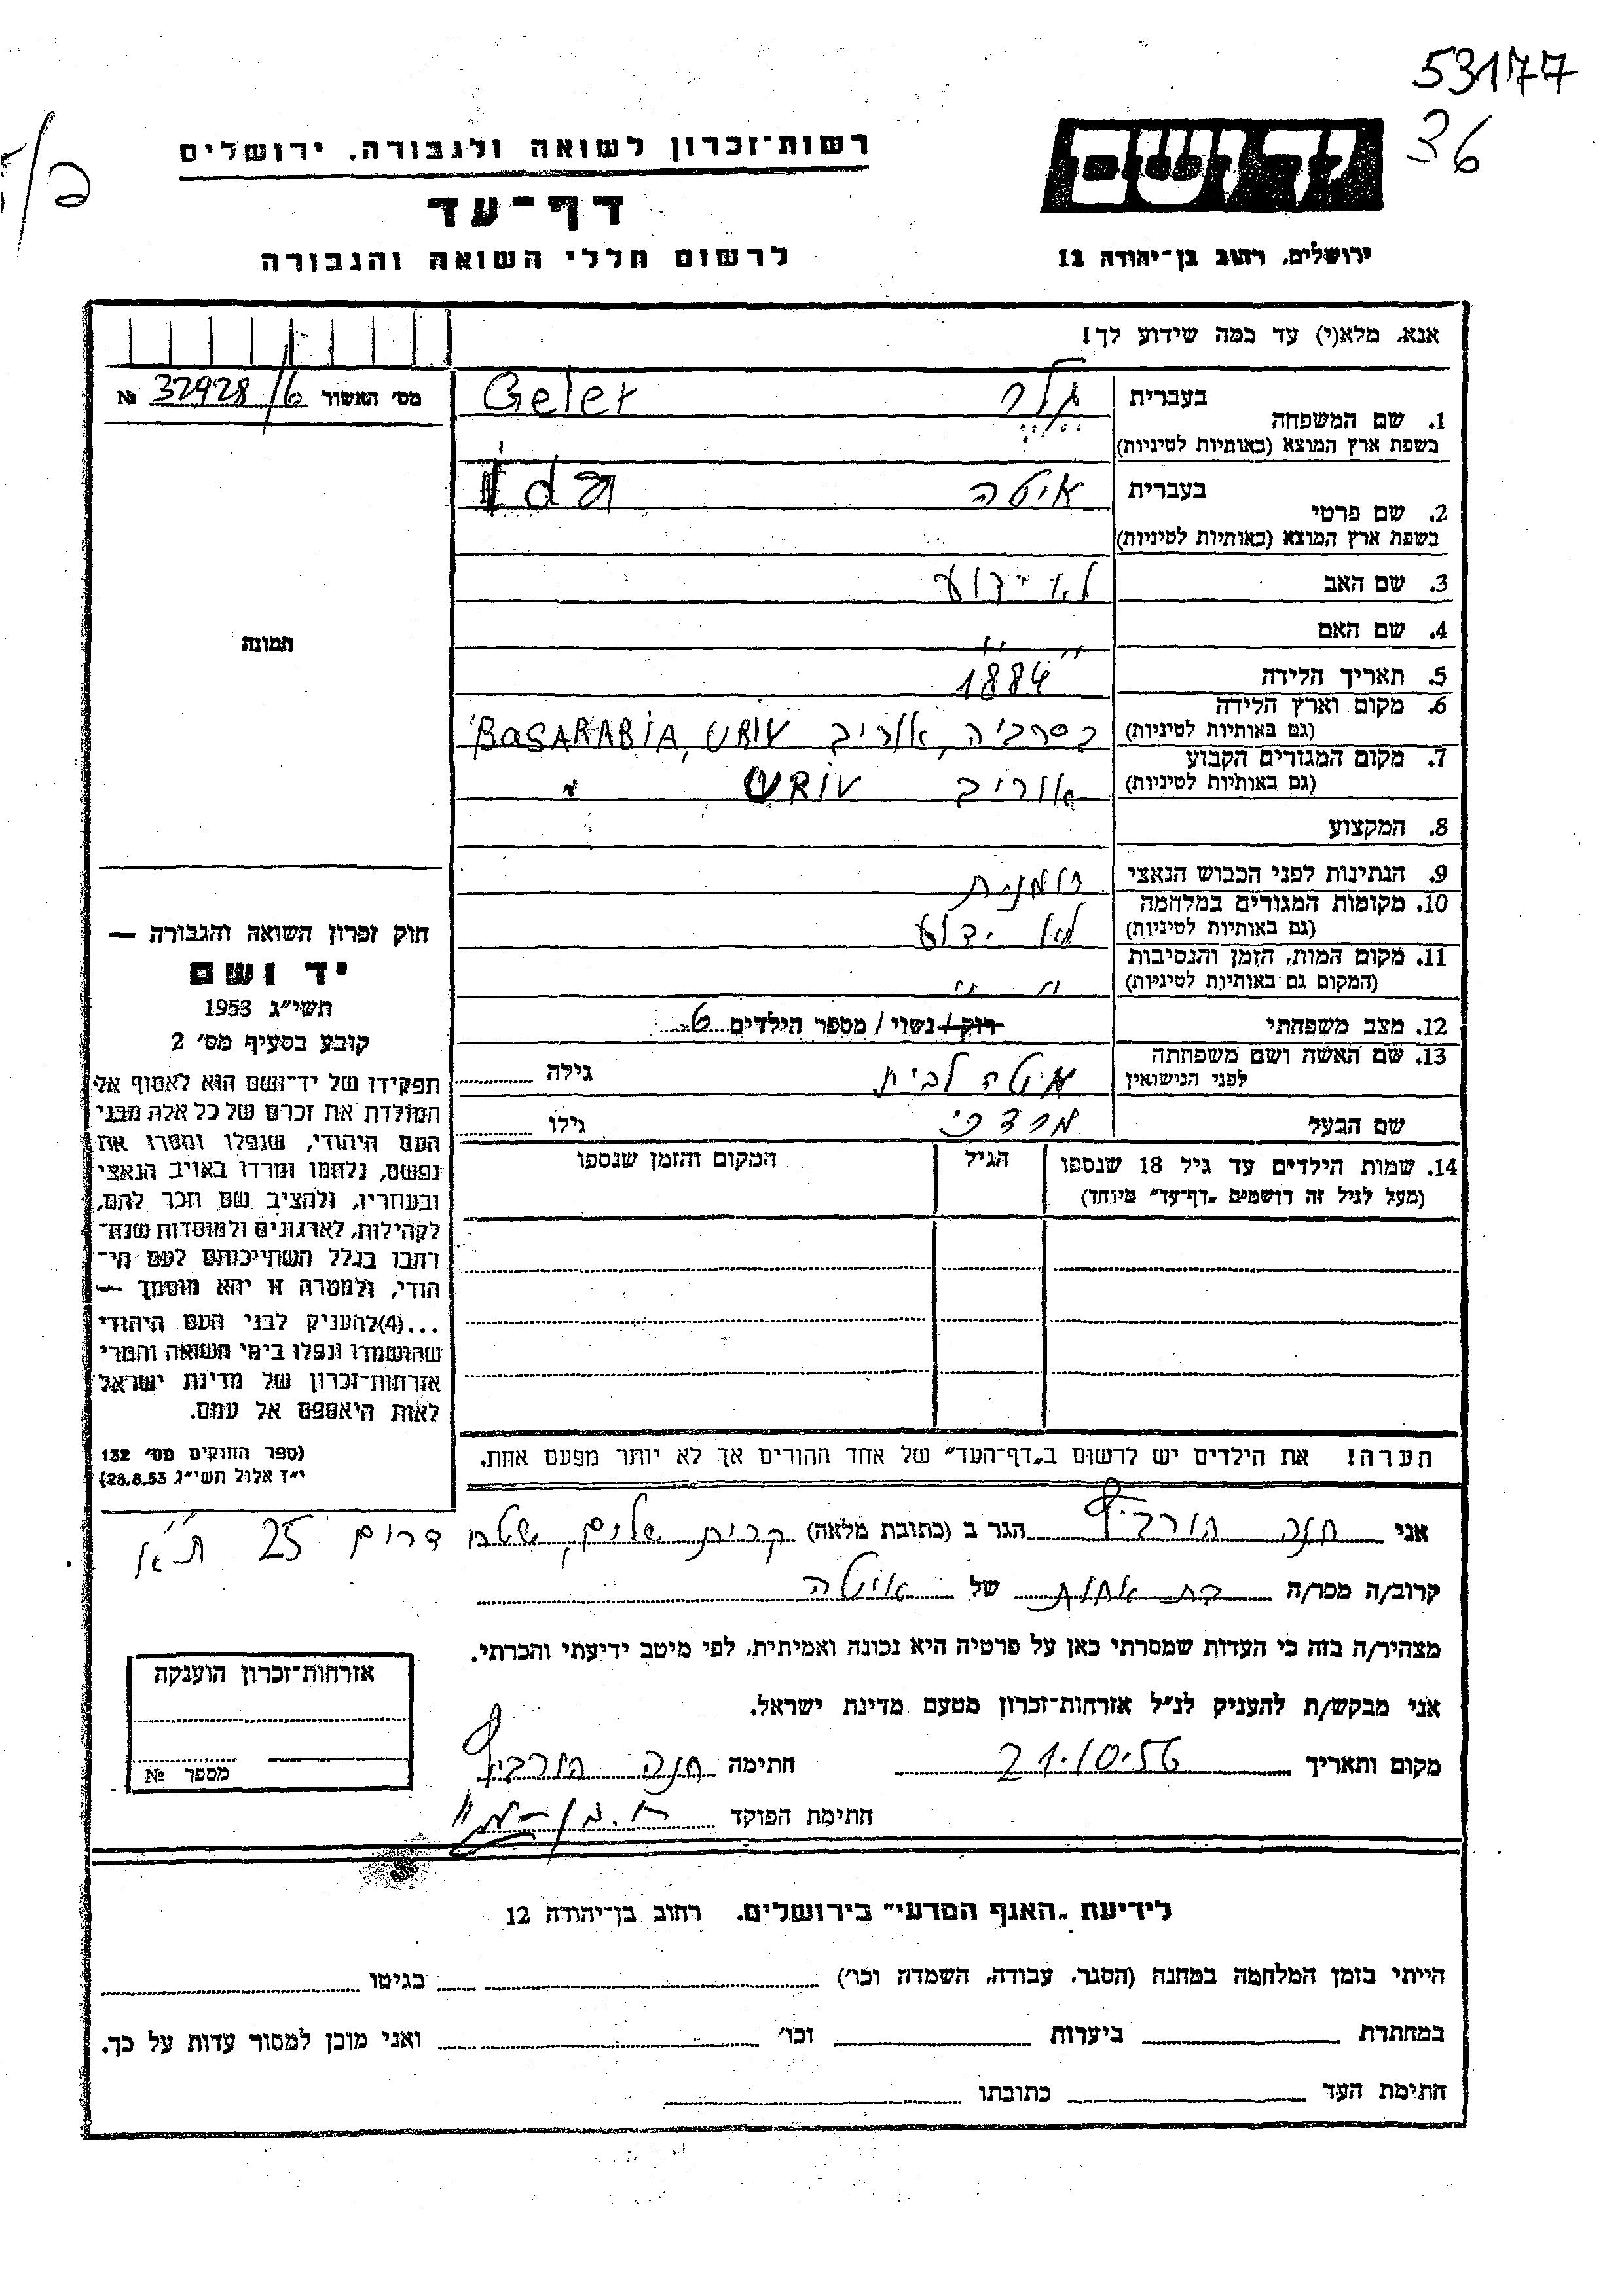 53177
36
רשות־זכרון לשואה ולגבורה, ירושלים
דף־עד
לרשום חללי השואה והגבורה
יד ושם
ירושלים, רחוב בן־יהודה 12
אנא, מלא(י) עד כמה שידוע לך!
מס׳ האשור 32928/6 №
1. שם המשפחה
בעברית גלר Geler
בשפת ארץ המוצא (באותיות לטיניות)
2. שם פרטי
בעברית איטה Ida
בשפת ארץ המוצא (באותיות לטיניות)
3. שם האב לא ידוע
4. שם האם " "
תמונה
5. תאריך הלידה 1884
6. מקום וארץ הלידה
(גם באותיות לטיניות) בסרביה, אוריב BASARABIA, URIV
7. מקום המגורים הקבוע
(גם באותיות לטיניות) אוריב URIV
8. המקצוע
9. הנתינות לפני הכבוש הנאצי רומנית
10. מקומות המגורים במלחמה
(גם באותיות לטיניות) לא ידוע
11. מקום המות, הזמן והנסיבות
(המקום גם באותיות לטיניות) " "
12. מצב משפחתי רוק/נשוי/ מספר הילדים 6
13. שם האשה ושם משפחתה
לפני הנישואין איטה לבית גילה
שם הבעל מרדכי גילו
14. שמות הילדים עד גיל 18 שנספו
(מעל לגיל זה רושמים „דף־עד״ מיוחד)
הגיל
המקום והזמן שנספו
הערה! את הילדים יש לרשום ב„דף־העד״ של אחד ההורים אך לא יותר מפעם אחת.
חוק זכרון השואה והגבורה —
יד ושם
תשי״ג 1953
קובע בסעיף מס׳ 2
תפקידו של יד־ושם הוא לאסוף אל
המולדת את זכרם של כל אלה מבני
העם היהודי, שנפלו ומסרו את
נפשם, נלחמו ומרדו באויב הנאצי
ובעוזריו, ולהציב שם וזכר להם,
לקהילות, לארגונים ולמוסדות שנח־
רבו בגלל השתייכותם לעם הי־
הודי, ולמטרה זו יהא מוסמך —
...(4)להעניק לבני העם היהודי
שהושמדו ונפלו בימי השואה והמרי
אזרחות־זכרון של מדינת ישראל
לאות היאספם אל עמם.
(ספר החוקים מס׳ 132
י״ז אלול תשי״ג 28.8.53)
אני חנה הורביץ הגר ב (כתובת מלאה) קרית שלום, דרום 25 ת״א
קרוב/ה מכר/ה בת אחות של איטה
מצהיר/ה בזה כי העדות שמסרתי כאן על פרטיה היא נכונה ואמיתית, לפי מיטב ידיעתי והכרתי.
אני מבקש/ת להעניק לנ״ל אזרחות־זכרון מטעם מדינת ישראל.
מקום ותאריך 21.10.56 חתימה חנה הורביץ
חתימת הפוקד
אזרחות־זכרון הוענקה
מספר №
לידיעת „האגף המדעי״ בירושלים. רחוב בן־יהודה 12
הייתי בזמן המלחמה במחנה (הסגר, עבודה, השמדה וכו׳) בגיטו
במחתרת ביערות וכו׳ ואני מוכן למסור עדות על כך.
חתימת העד כתובתו